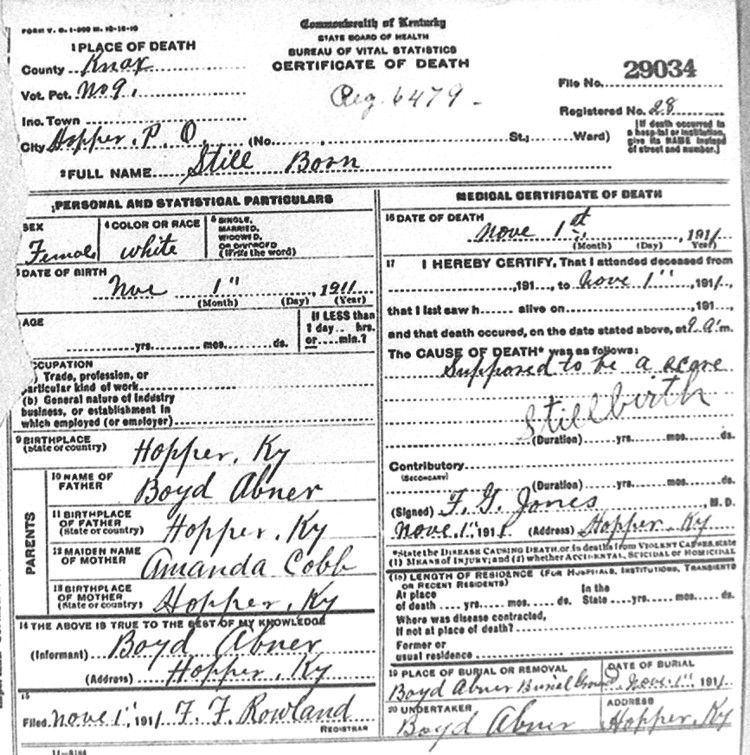 FORM V. S. 1-200 M. 10-15-10
Commonwealth of Kentucky
STATE BOARD OF HEALTH
BUREAU OF VITAL STATISTICS
CERTIFICATE OF DEATH
1 PLACE OF DEATH
County Knox
Vot. Pct. No 9.
Inc. Town
City Hopper, P. O (No. , St.; Ward)
File No. 29034
Reg. 6479 -
Registered No. 28
[If death occurred in a hospital or institution, give its NAME instead of street and number.]
2 FULL NAME Still Born
PERSONAL AND STATISTICAL PARTICULARS
SEX Female
4 COLOR OR RACE white
5 SINGLE, MARRIED, WIDOWED, OR DIVORCED (Write the word)
DATE OF BIRTH
Nov 1" , 1911
(Month) (Day) (Year)
AGE
yrs. mos. ds.
If LESS than 1 day.. hrs. or.... min.?
OCCUPATION
(a) Trade, profession, or particular kind of work
(b) General nature of industry business, or establishment in which employed (or employer)
9 BIRTHPLACE (State or country) Hopper, Ky
PARENTS
10 NAME OF FATHER Boyd Abner
11 BIRTHPLACE OF FATHER (State or country) Hopper, Ky
12 MAIDEN NAME OF MOTHER Amanda Cobb
13 BIRTHPLACE OF MOTHER (State or country) Hopper, Ky
14 THE ABOVE IS TRUE TO THE BEST OF MY KNOWLEDGE
(Informant) Boyd Abner
(Address) Hopper, Ky
15
Filed Nove 1", 1911 F. F. Rowland
REGISTRAR
11-8184
MEDICAL CERTIFICATE OF DEATH
16 DATE OF DEATH
Nove 1st , 1911
(Month) (Day) Year)
17 I HEREBY CERTIFY, That I attended deceased from
, 191 , to Nove 1" , 1911,
that I last saw h alive on , 191 ,
and that death occured, on the date stated above, at 9 a. m.
The CAUSE OF DEATH* was as follows:
Supposed to be a scare
Stillbirth
(Duration) yrs. mos. ds.
Contributory
(SECONDARY)
(Duration) yrs. mos. ds.
(Signed) F. G. Jones , M. D.
Nove 1", 1911 (Address) Hopper, Ky
*State the DISEASE CAUSING DEATH, or in deaths from VIOLENT CAUSES, state
(1) MEANS OF INJURY; and (2) whether ACCIDENTAL, SUICIDAL or HOMICIDAL
(18) LENGTH OF RESIDENCE (FOR HOSPITALS, INSTITUTIONS, TRANSIENTS OR RECENT RESIDENTS)
At place of death yrs. mos. ds. In the State yrs. mos. ds.
Where was disease contracted,
If not at place of death?
Former or
usual residence
19 PLACE OF BURIAL OR REMOVAL
Boyd Abner Burial Ground
DATE OF BURIAL
Nove 1" 1911
20 UNDERTAKER
Boyd Abner
ADDRESS
Hopper, Ky